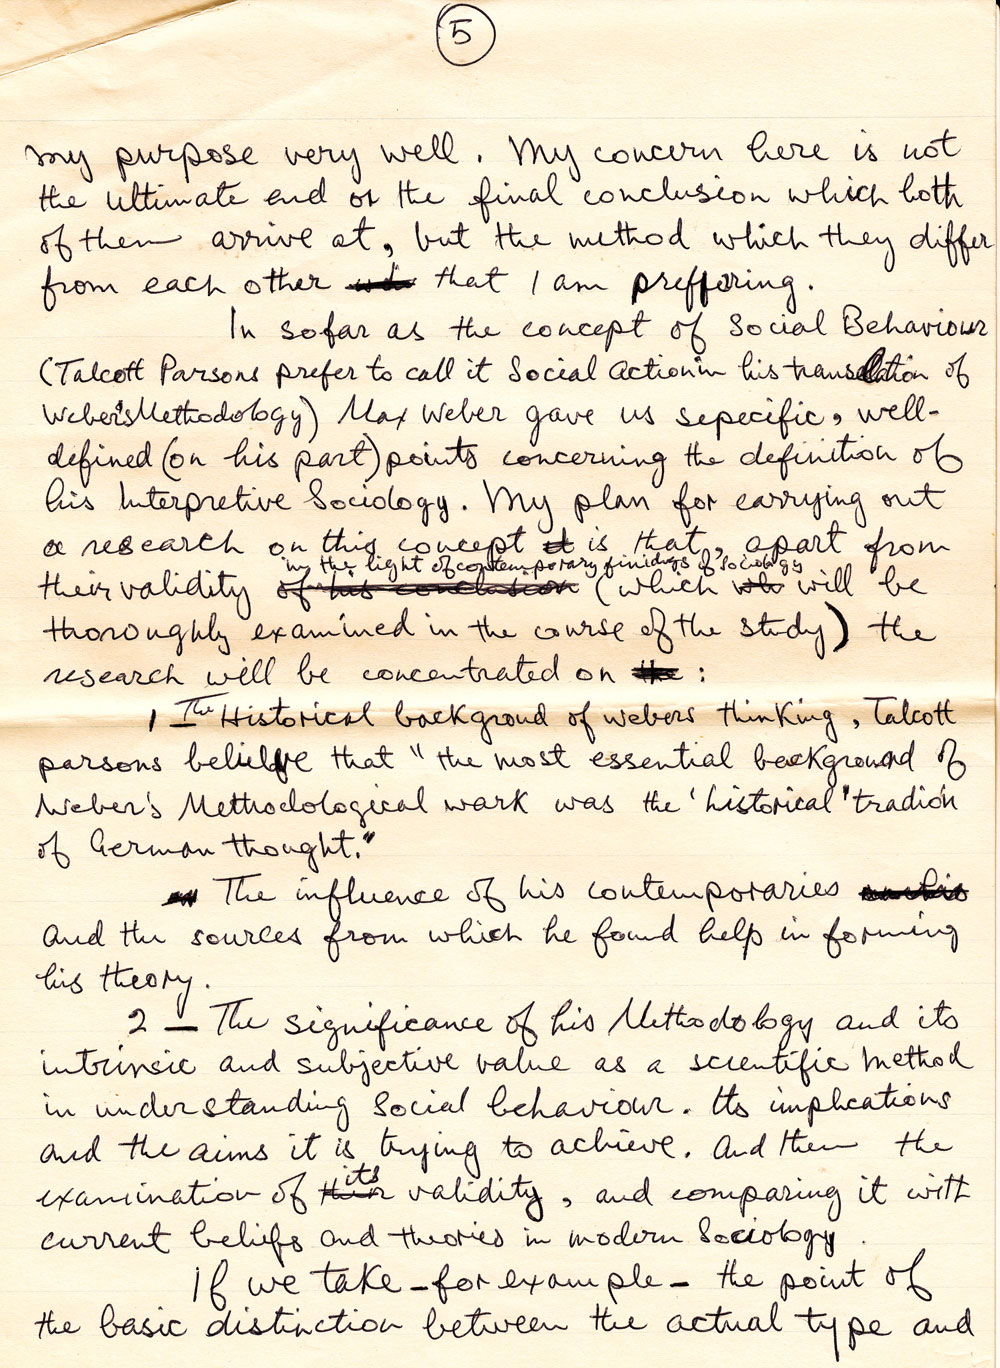 5
my purpose very well. My concern here is not
the ultimate end or the final conclusion which both
of them arrive at, but the method which they differ
from each other that I am preffering.
In sofar as the concept of Social Behaviour
(Talcott Parsons prefer to call it Social Action in his translation of
Weber's Methodology) Max Weber gave us sepecific, well-
defined (on his part) points concerning the definition of
his Interpretive Sociology. My plan for carrying out
a research on this concept is that, apart from
in the light of contemporary finidings of sociology
their validity of his conclusion (which will be
thoroughly examined in the course of the study) the
research will be concentrated on the :
1 The Historical backgroud of webers thinking, Talcott
parsons believe that "the most essential background of
Weber's Methodological work was the 'historical' tradion
of German thought."
The influence of his contemporaries
and the sources from which he found help in forming
his theory.
2 — The significance of his Methodology and its
intrinsic and subjective value as a scientific method
in understanding Social behaviour. Its implcations
and the aims it is trying to achieve. And then the
its
examination of their validity, and comparing it with
current beliefs and theories in modern Sociology.
If we take – for example – the point of
the basic distinction between the actual type and